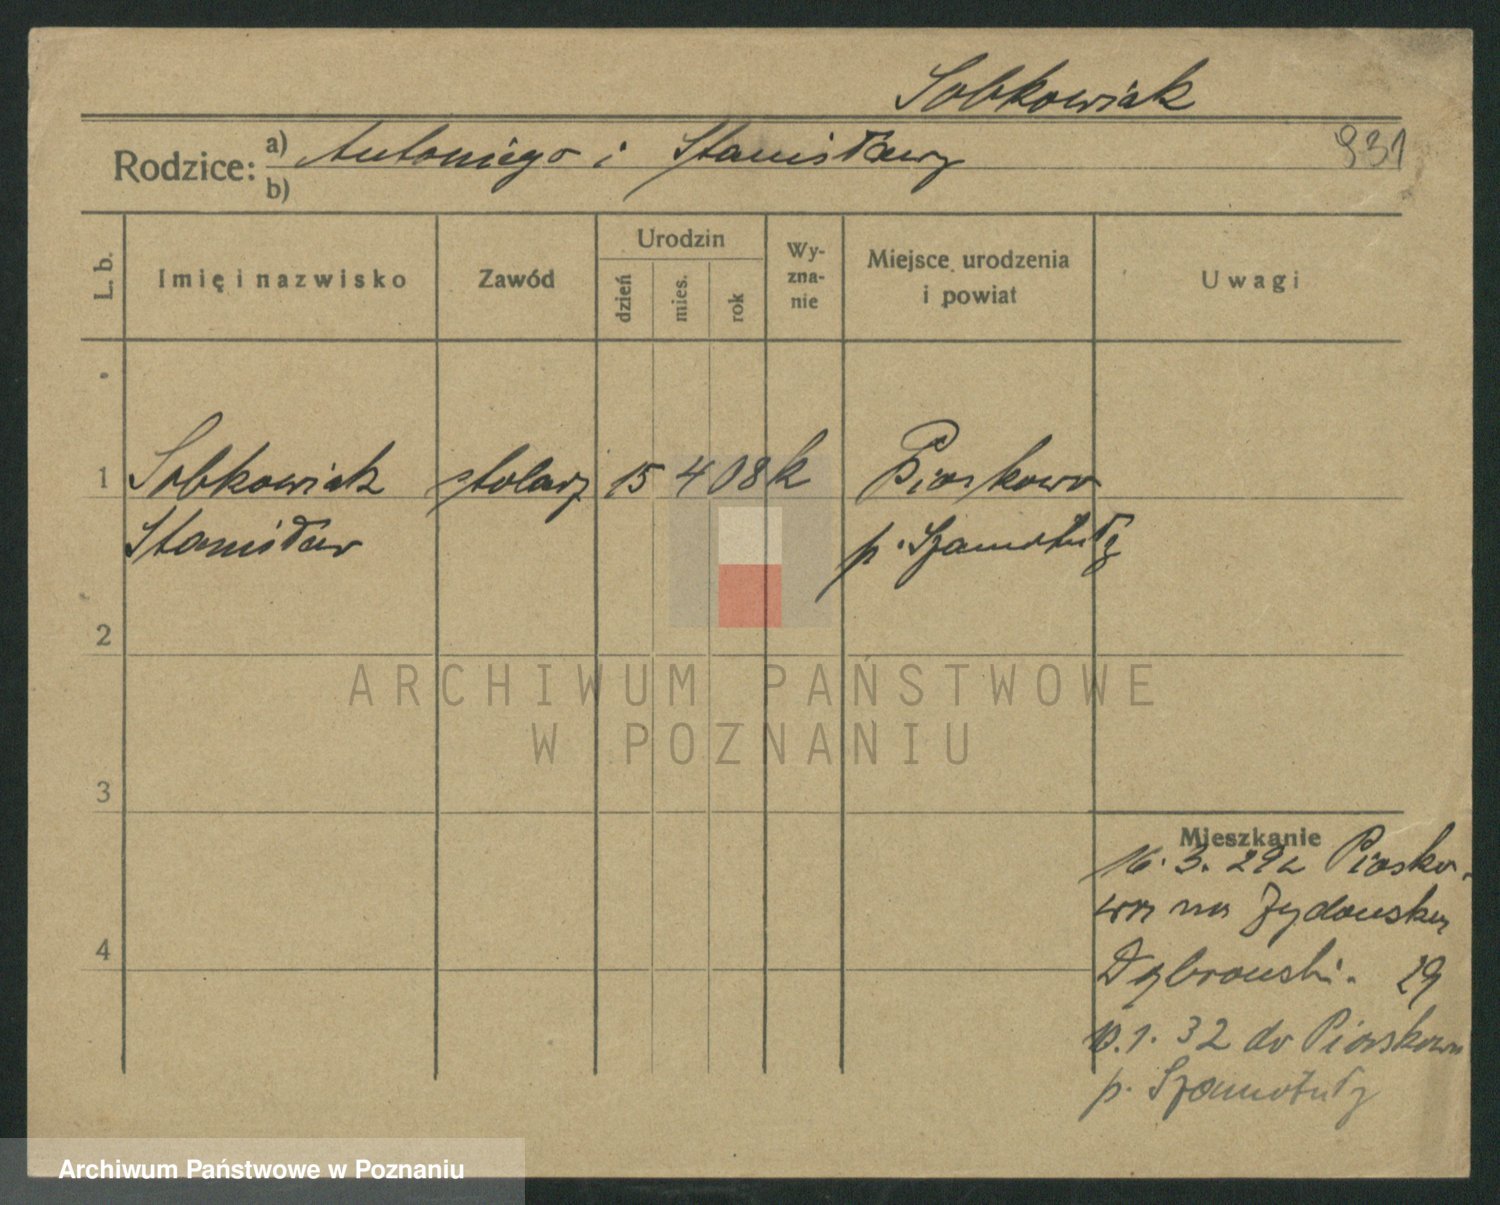 Sobkowiak
Rodzice: a) Antoniego i Stanisławy
931
b)
L. b.
Imię i nazwisko
Zawód
Urodzin
dzień
mies.
rok
Wy-
zna-
nie
Miejsce urodzenia
i powiat
Uwagi
1 Sobkowiak stolarz 15 4 08 k Piaskowo
Stanisław p. Szamotuły
2
3
4
Mieszkanie
16. 3. 29 z Piasko-
wa na Żydowskiej
Dąbrowski. 29
10. 1. 32 do Piaskowa
p. Szamotuły
ARCHIWUM PAŃSTWOWE
W POZNANIU
Archiwum Państwowe w Poznaniu